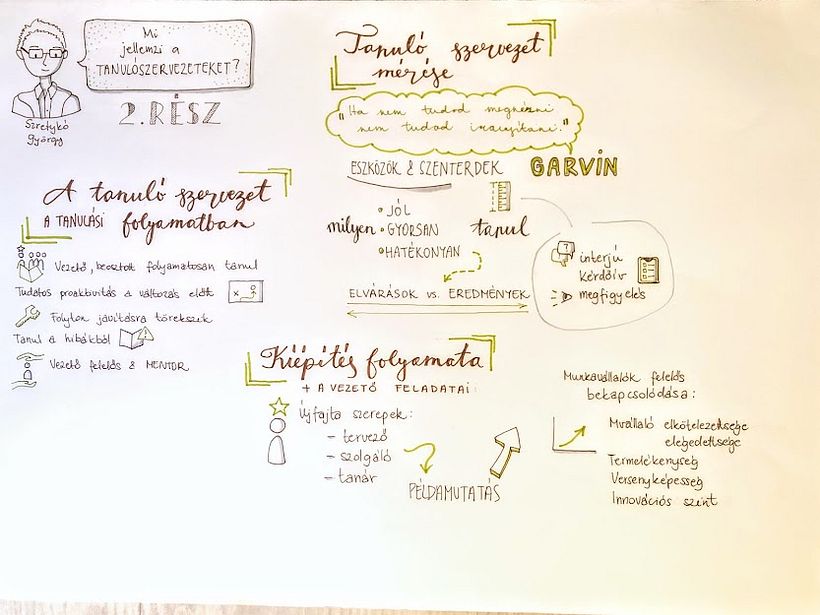 Mi
jellemzi a
TANULÓSZERVEZETEKET?
2. RÉSZ
Szretykó
György
A tanuló szervezet
A TANULÁSI folyamatban
Vezető, beosztott folyamatosan tanul
Tudatos proaktivitás a változás előtt
Folyton javításra törekszik
Tanul a hibákból
Vezető felelős & MENTOR
Tanuló szervezet
mérése
"Ha nem tudod megnézni
nem tudod irányítani."
ESZKÖZÖK & SZENTERDEK GARVIN
milyen • JÓL
• GYORSAN
• HATÉKONYAN
tanul
interjú
kérdőív
megfigyelés
ELVÁRÁSOK vs. EREDMÉNYEK
Kiépítés folyamata
+ A VEZETŐ FELADATAI:
Újfajta szerepek:
- tervező
- szolgáló
- tanár
PÉLDAMUTATÁS
Munkavállalók felelős
bekapcsolódása:
Mvállaló elkötelezettsége
elégedettsége
Termelékenység
Versenyképesség
Innovációs szint